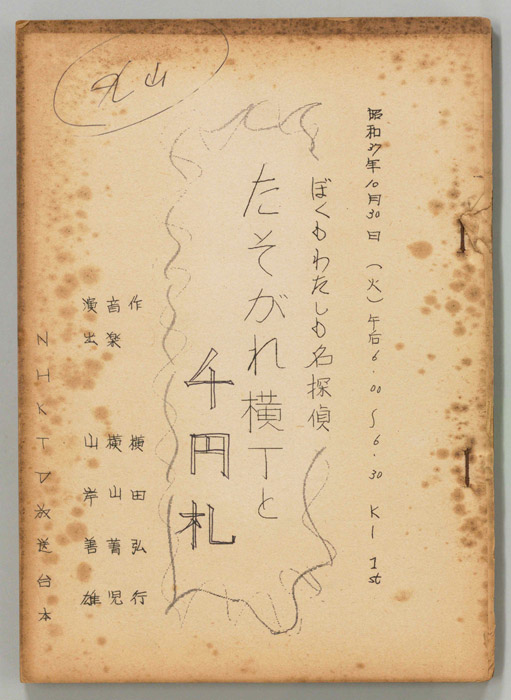 昭和37年10月30日(火)午后6.00〜6.30 KI Ist
ぼくもわたしも名探偵
たそがれ横丁と
千円札
作 横田弘行
音楽 横山菁児
演出 山岸善雄
NHKTV放送台本